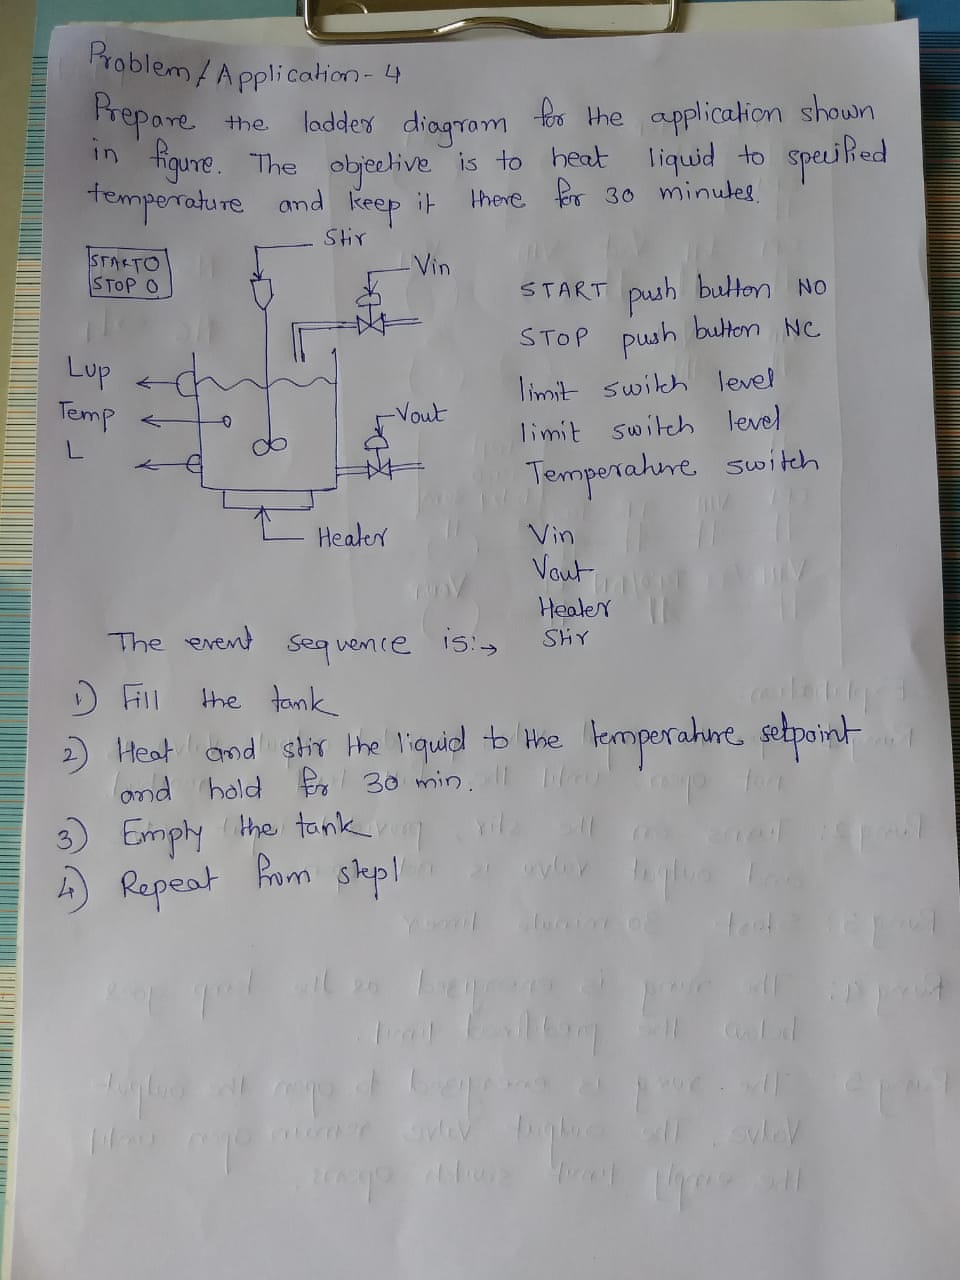 Problem / Application - 4
Prepare the ladder diagram for the application shown
in figure. The objective is to heat liquid to specified
temperature and keep it there for 30 minutes.
Stir
START O
STOP O
Vin
START push button NO
STOP push button NC
Lup
limit switch level
Temp
Vout
limit switch level
L
Temperature switch
Heater
Vin
Vout
Heater
The event sequence is:→
Stir
1) Fill the tank
2) Heat and stir the liquid to the temperature setpoint
and hold for 30 min.
3) Empty the tank
4) Repeat from step 1